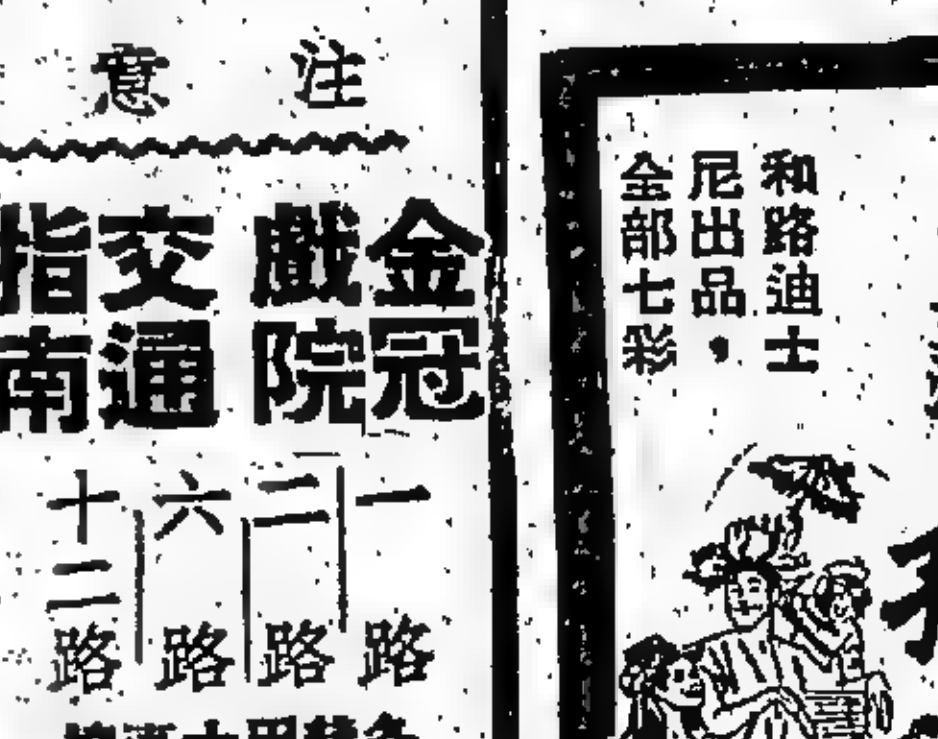 注意
金冠戲院交通指南
一路
二路
六路
十二路
和路迪士
尼出品，
全部七彩